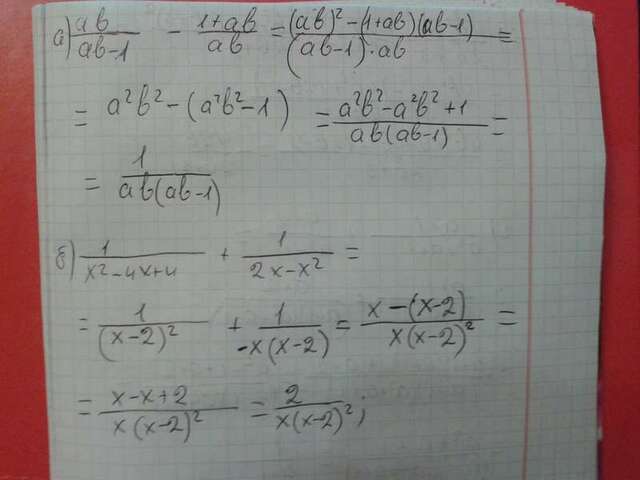 а) ab/(ab-1) - (1+ab)/ab = ((ab)²-(1+ab)(ab-1))/((ab-1)·ab) =
= a²b²-(a²b²-1) = (a²b²-a²b²+1)/(ab(ab-1)) =
= 1/(ab(ab-1))
б) 1/(x²-4x+4) + 1/(2x-x²) =
= 1/(x-2)² + 1/(-x(x-2)) = (x-(x-2))/(x(x-2)²) =
= (x-x+2)/(x(x-2)²) = 2/(x(x-2)²);